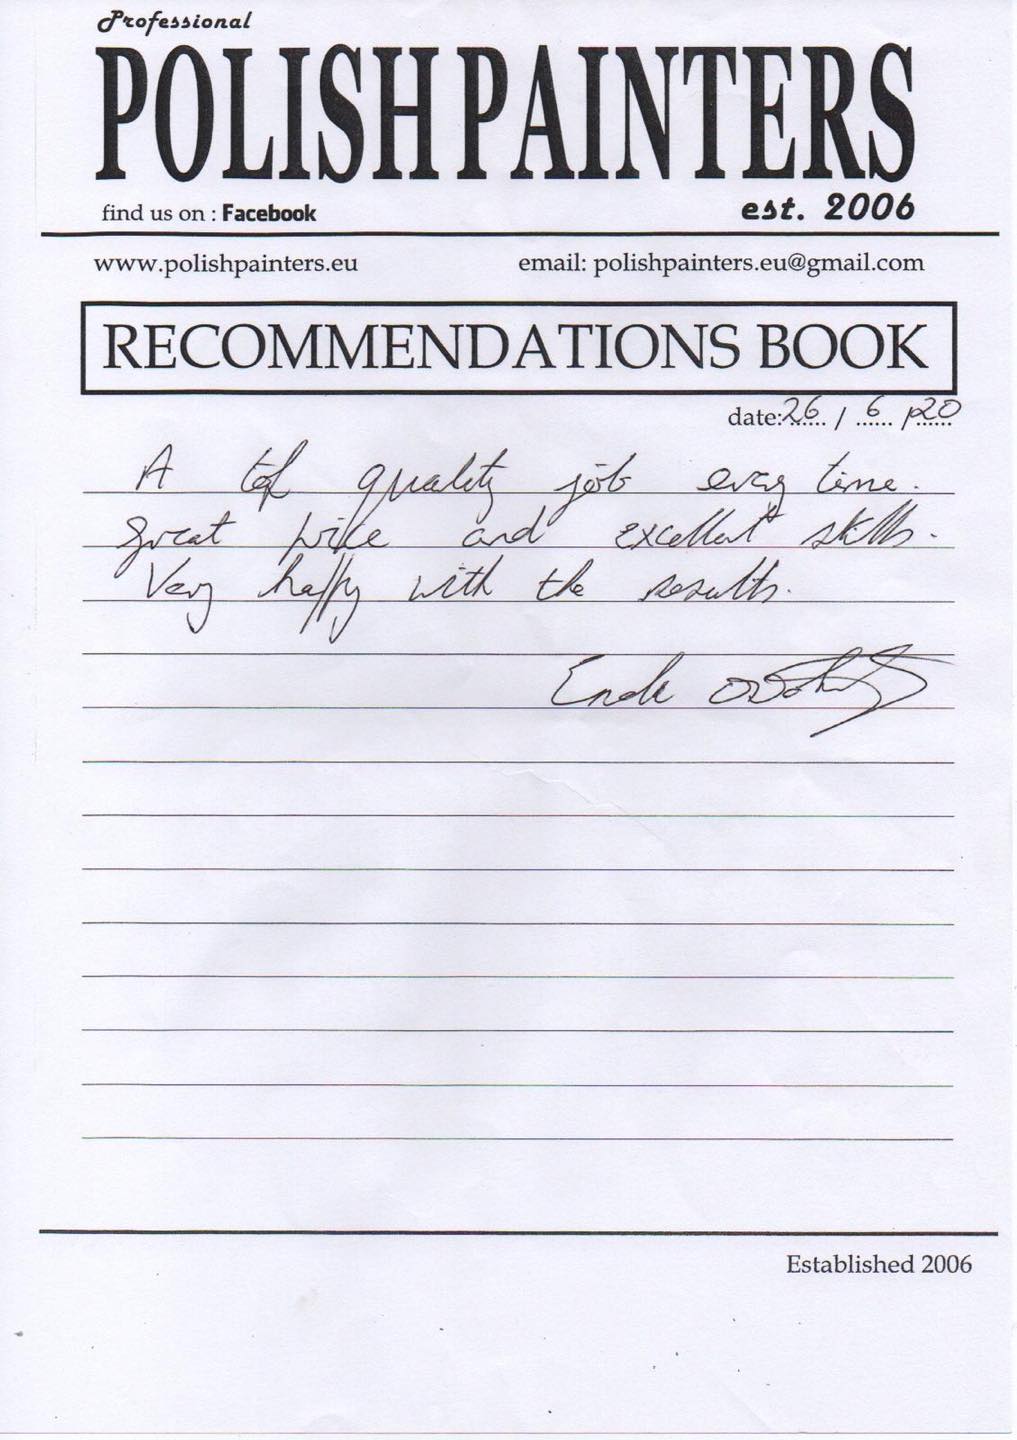 Professional
POLISH PAINTERS
find us on : Facebook
est. 2006
www.polishpainters.eu
email: polishpainters.eu@gmail.com
RECOMMENDATIONS BOOK
date: 26 / 6 / 20
A top quality job every time.
Great price and excellent skills.
Very happy with the results.
Enda
Established 2006